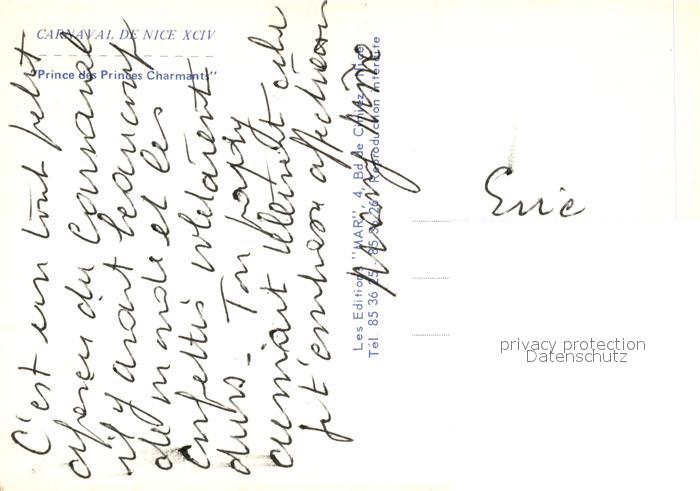 CARNAVAL DE NICE XCIV
"Prince des Princes Charmants"
C'est un tout petit
aperçu du Carnaval
il y avait beaucoup
de monde et les
confettis volaient
durs - Ton papy
aimait cela
je t'embrasse affectueusement
Les Editions "MAR", 4, Bd de Cimiez, Nice
Tél. 85 36 25 - 85 36 26 Reproduction interdite
Eric
privacy protection
Datenschutz